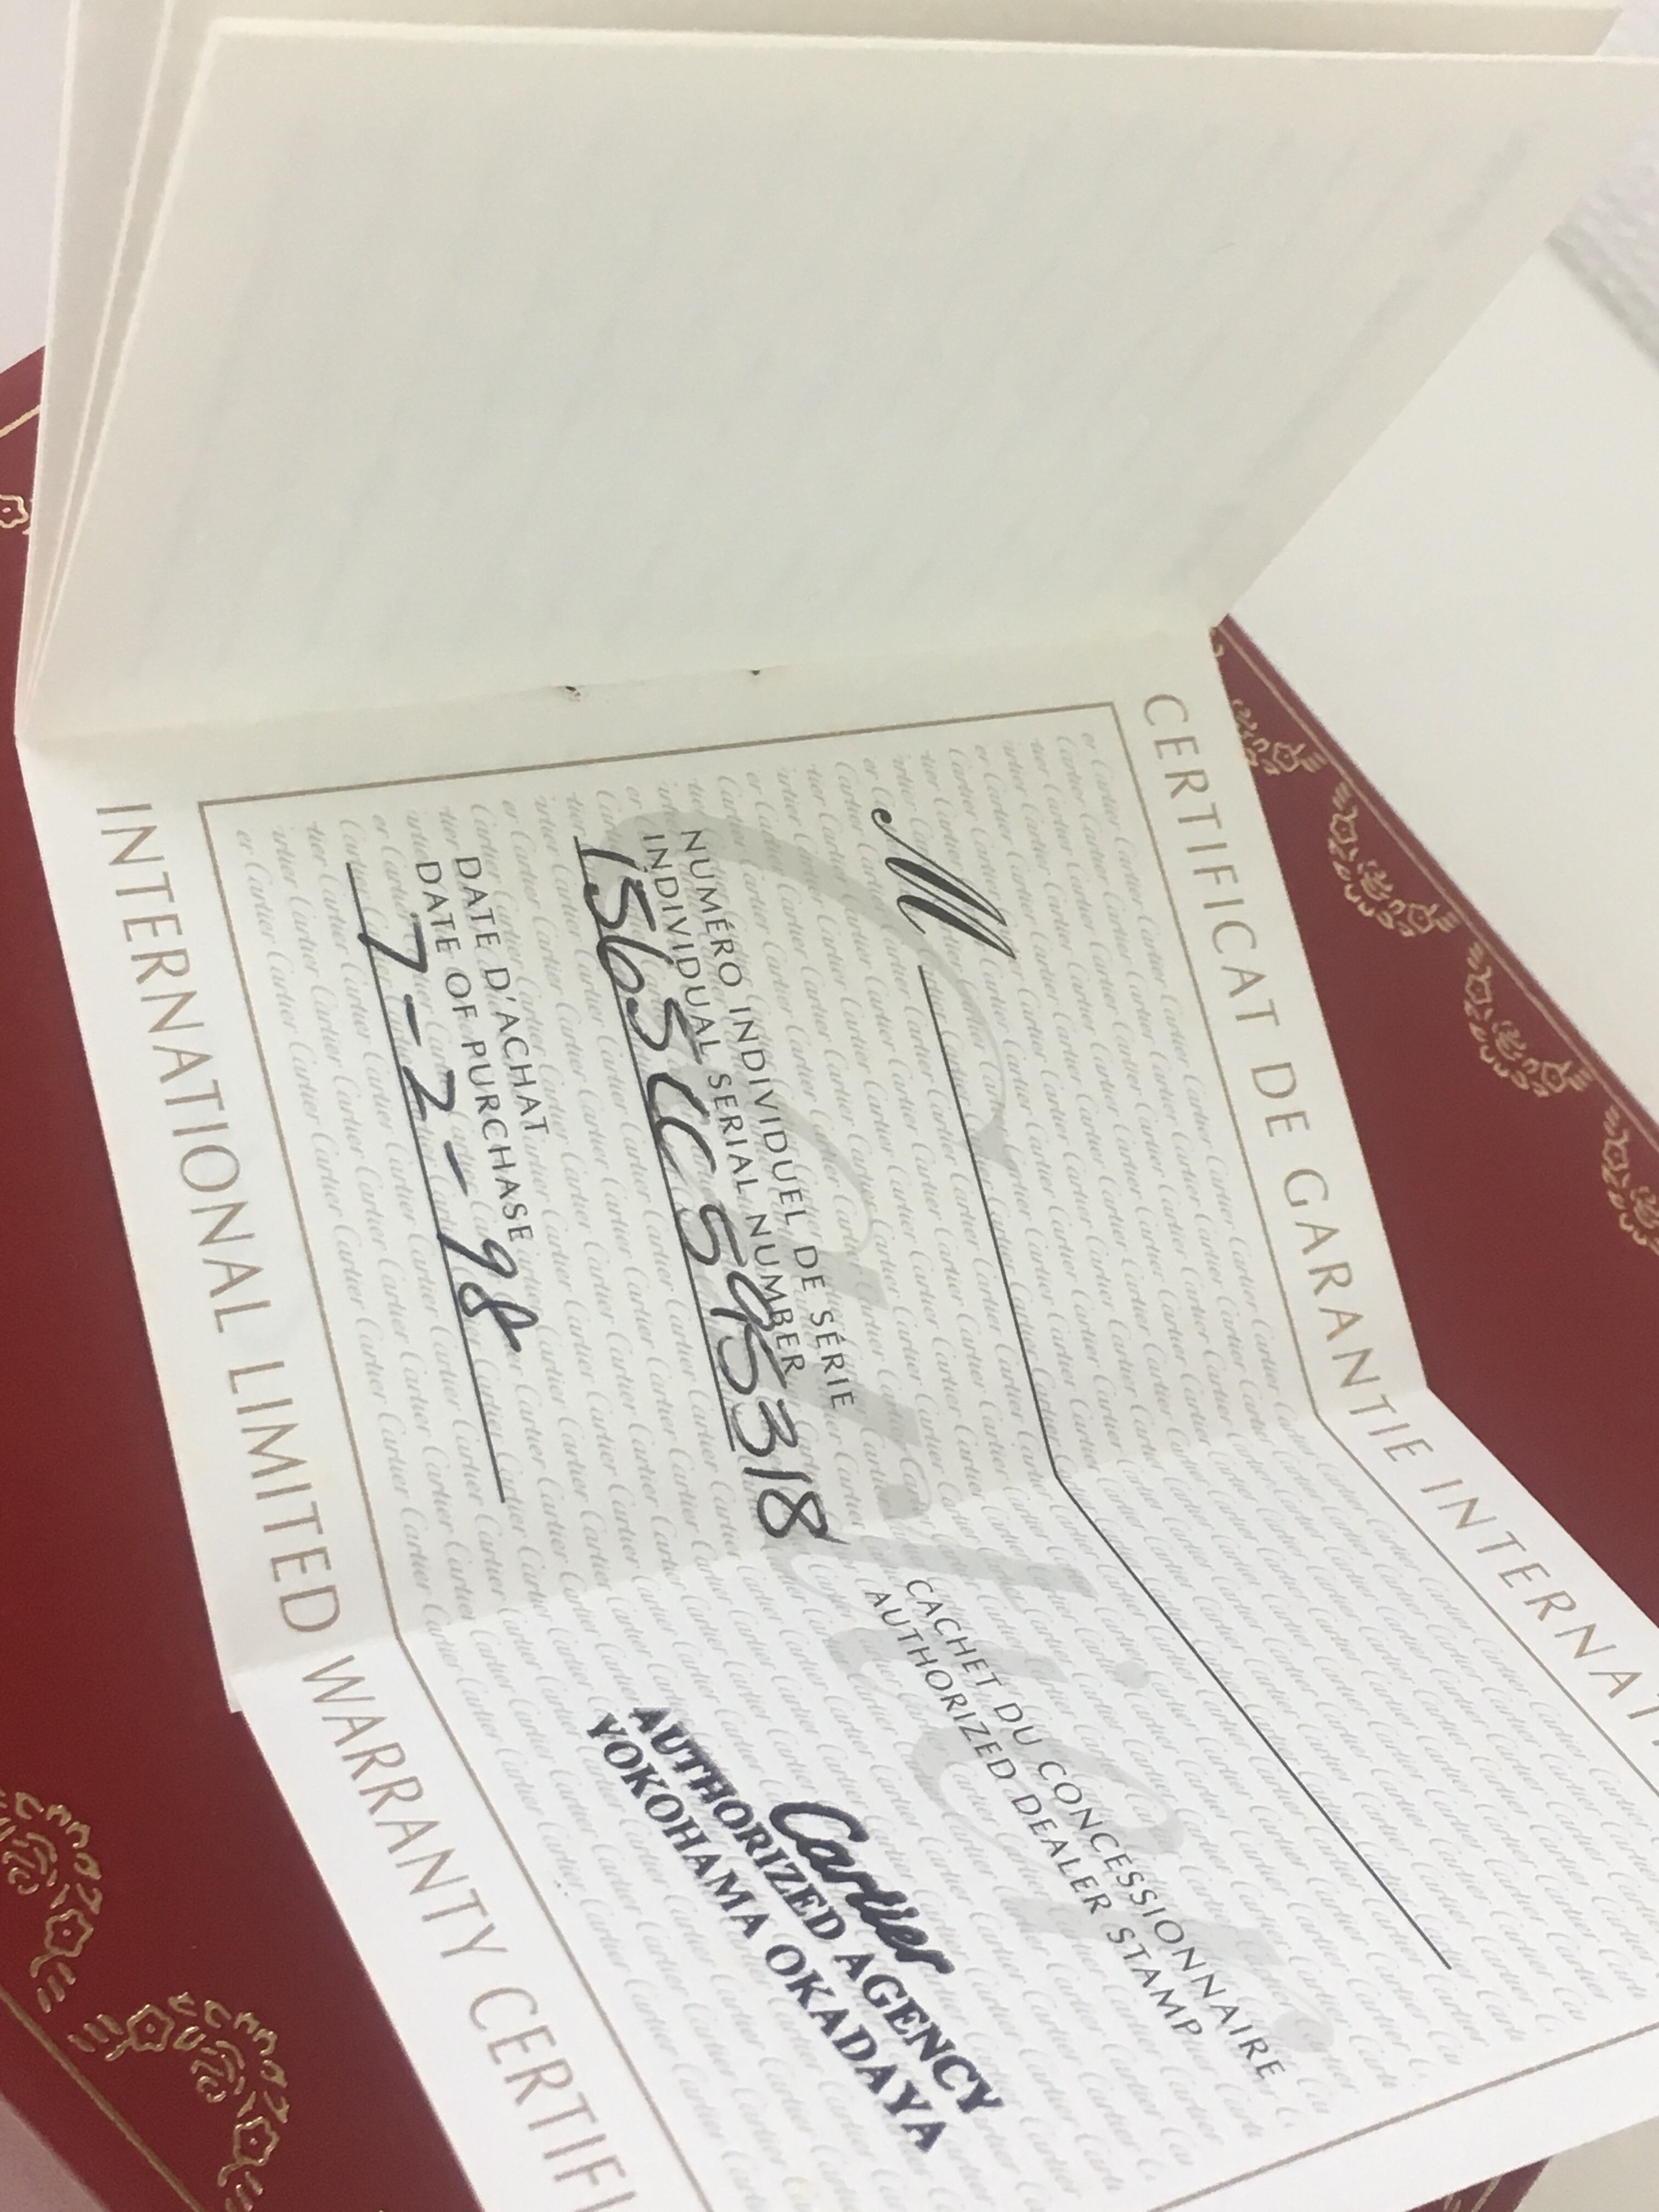 CERTIFICAT DE GARANTIE INTERNAT
M
NUMÉRO INDIVIDUEL DE SÉRIE
INDIVIDUAL SERIAL NUMBER
1565 CC595318
DATE D'ACHAT
DATE OF PURCHASE
7-2-98
CACHET DU CONCESSIONNAIRE
AUTHORIZED DEALER STAMP
Cartier
AUTHORIZED AGENCY
YOKOHAMA OKADAYA
INTERNATIONAL LIMITED WARRANTY CERTIFI